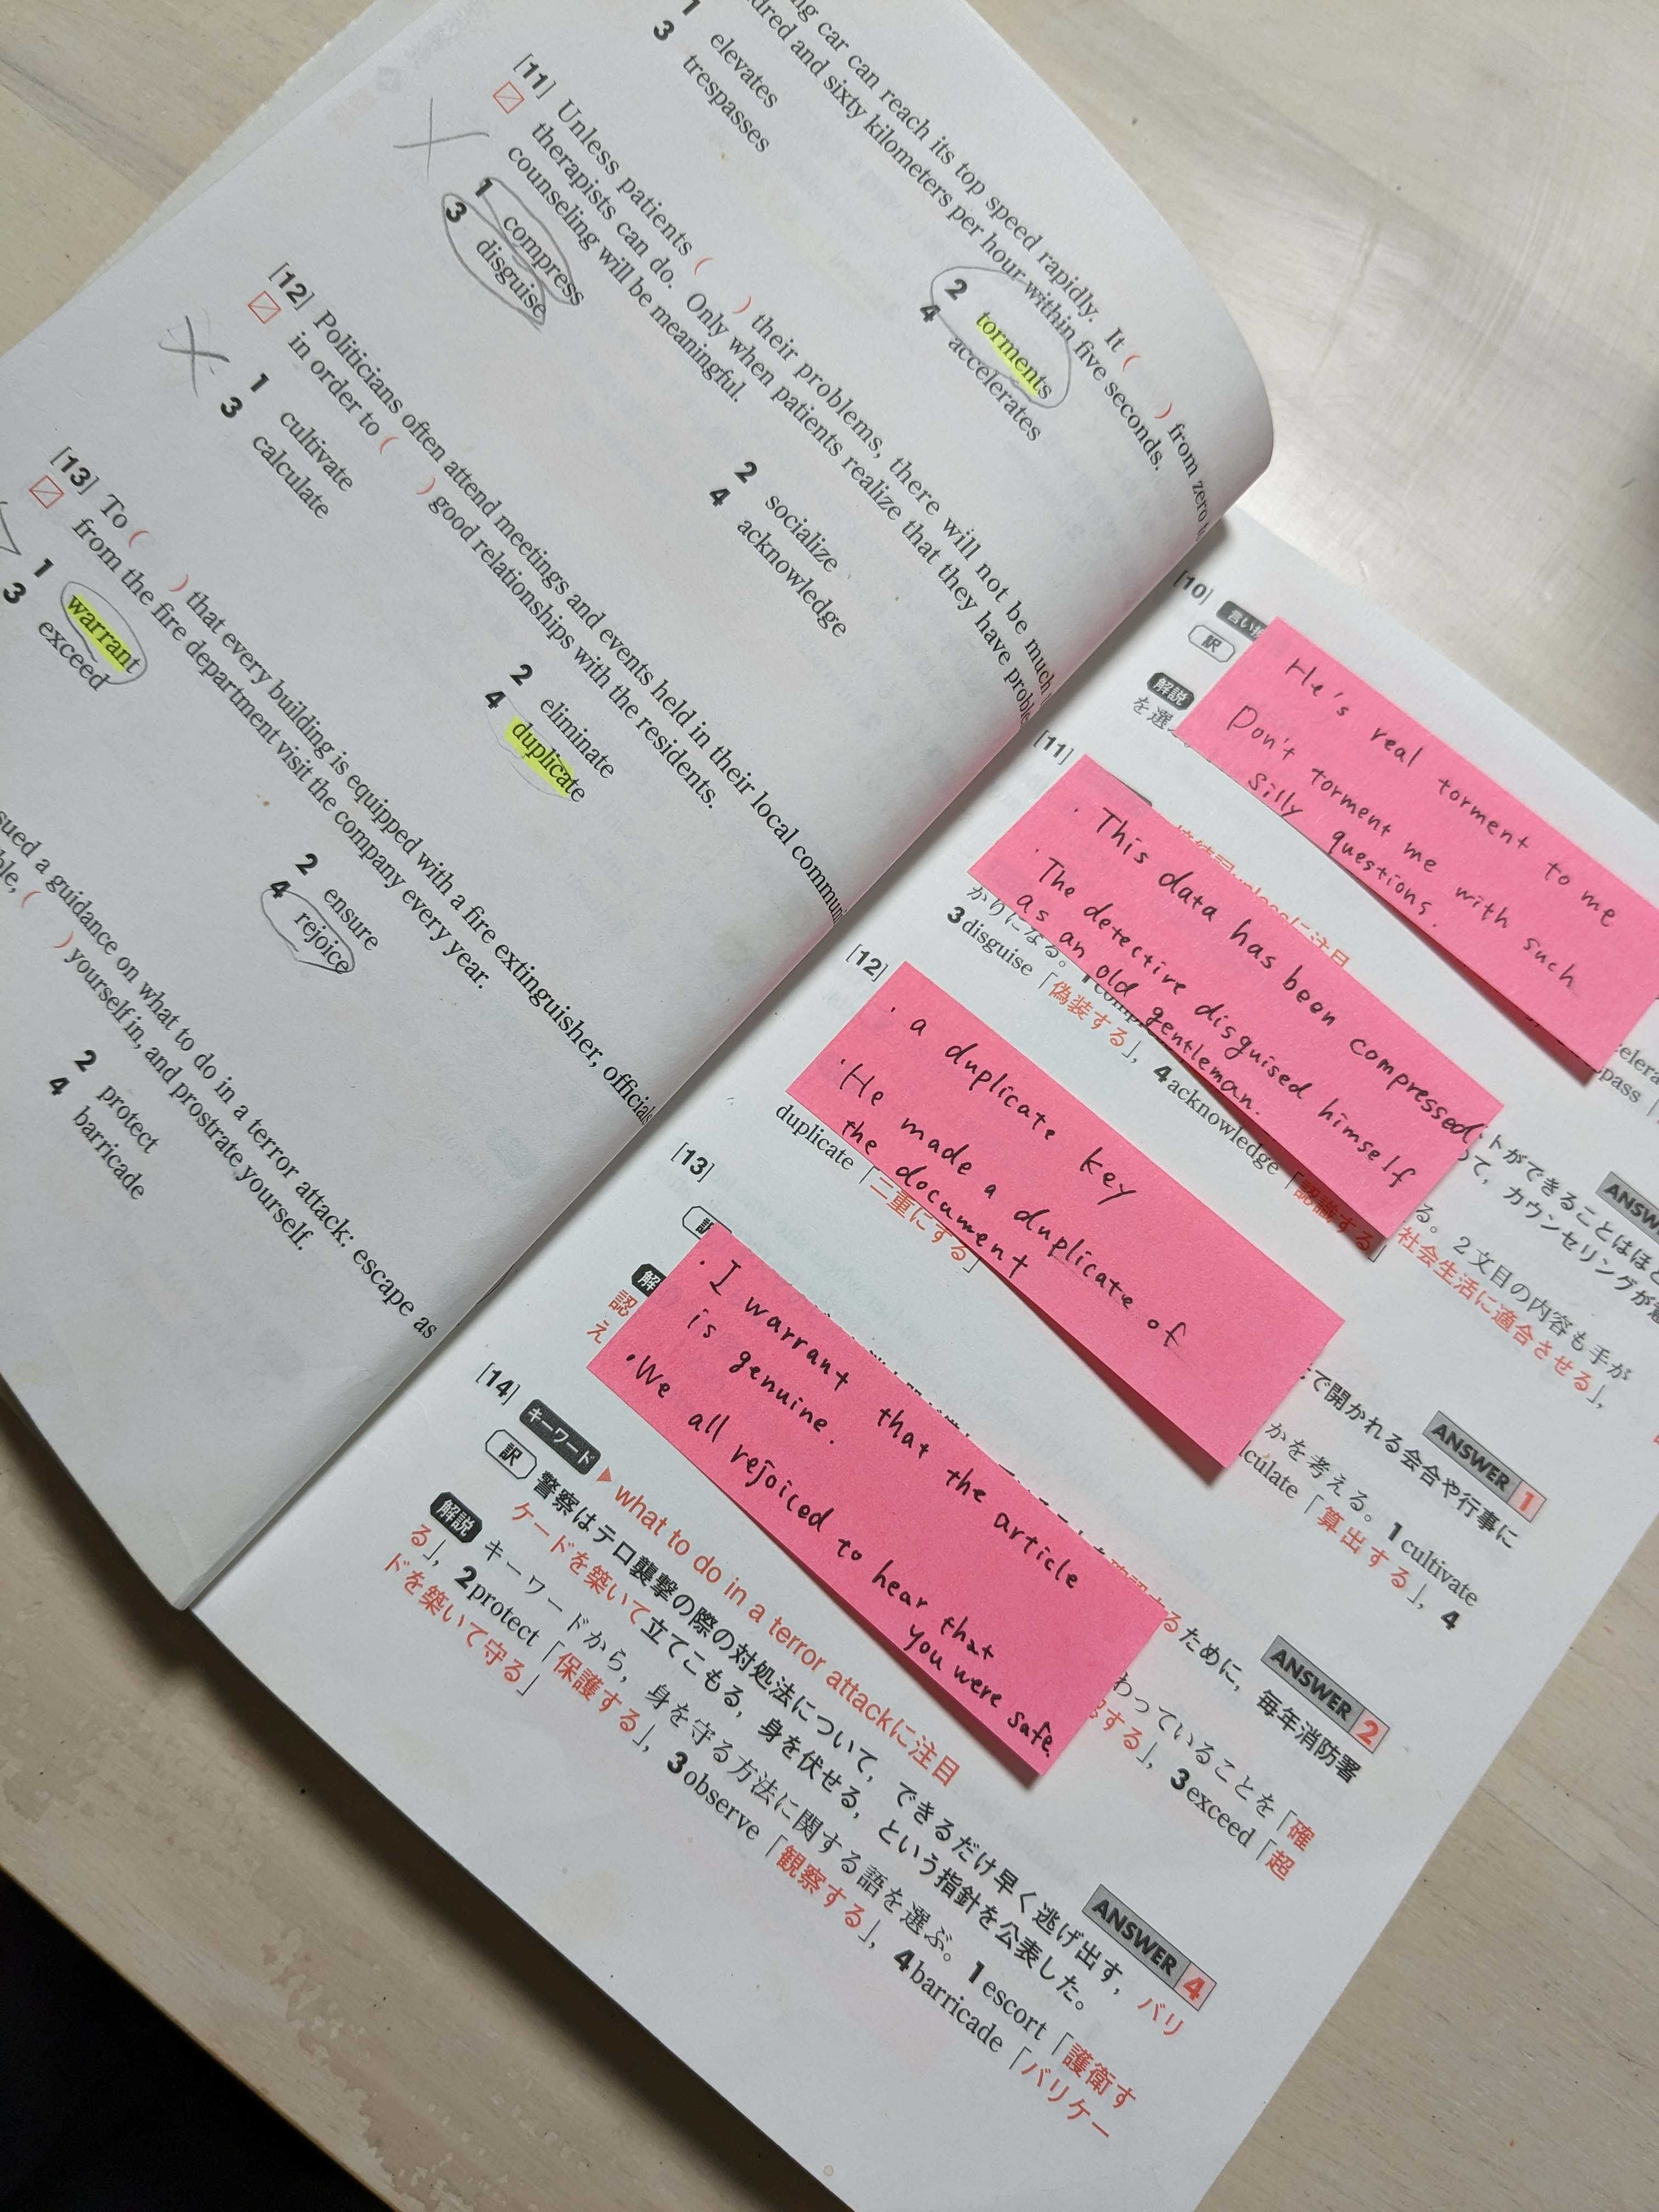 ng car can reach its top speed rapidly. It ( ) from zero
dred and sixty kilometers per hour within five seconds.
1 elevates 2 torments
3 trespasses 4 accelerates
[11] Unless patients ( ) their problems, there will not be much
therapists can do. Only when patients realize that they have
counseling will be meaningful.
1 compress 2 socialize
3 disguise 4 acknowledge
[12] Politicians often attend meetings and events held in their local
in order to ( ) good relationships with the residents.
1 cultivate 2 eliminate
3 calculate 4 duplicate
[13] To ( ) that every building is equipped with a fire extinguisher, officials
from the fire department visit the company every year.
1 warrant 2 ensure
3 exceed 4 rejoice
sued a guidance on what to do in a terror attack: escape as
ble, ( ) yourself in, and prostrate yourself.
2 protect
4 barricade
[10]
訳
解説
を選
He's real torment to me
Don't torment me with such
silly questions.
[11]
・This data has been compressed.
・The detective disguised himself
as an old gentleman.
ANSW
トができることはほと
て, カウンセリングが意
る。2文目の内容も手が
かりになる。
社会生活に適合させる」,
3 disguise「偽装する」, 4 acknowledge「認識する」
[12]
・a duplicate key
・He made a duplicate of
the document
ANSWER 1
で開かれる会合や行事に
かを考える。1 cultivate
culate「算出する」, 4
duplicate「二重にする」
[13]
訳
解
認
え
・I warrant that the article
is genuine.
・We all rejoiced to hear that
you were safe.
ANSWER 2
るために, 毎年消防署
わっていることを「確
する」, 3 exceed「超
[14] キーワード ▶what to do in a terror attackに注目
ANSWER 4
訳 警察はテロ襲撃の際の対処法について, できるだけ早く逃げ出す, バリ
ケードを築いて立てこもる, 身を伏せる, という指針を公表した。
解説 キーワードから, 身を守る方法に関する語を選ぶ。1 escort「護衛す
る」, 2 protect「保護する」, 3 observe「観察する」, 4 barricade「バリケー
ドを築いて守る」